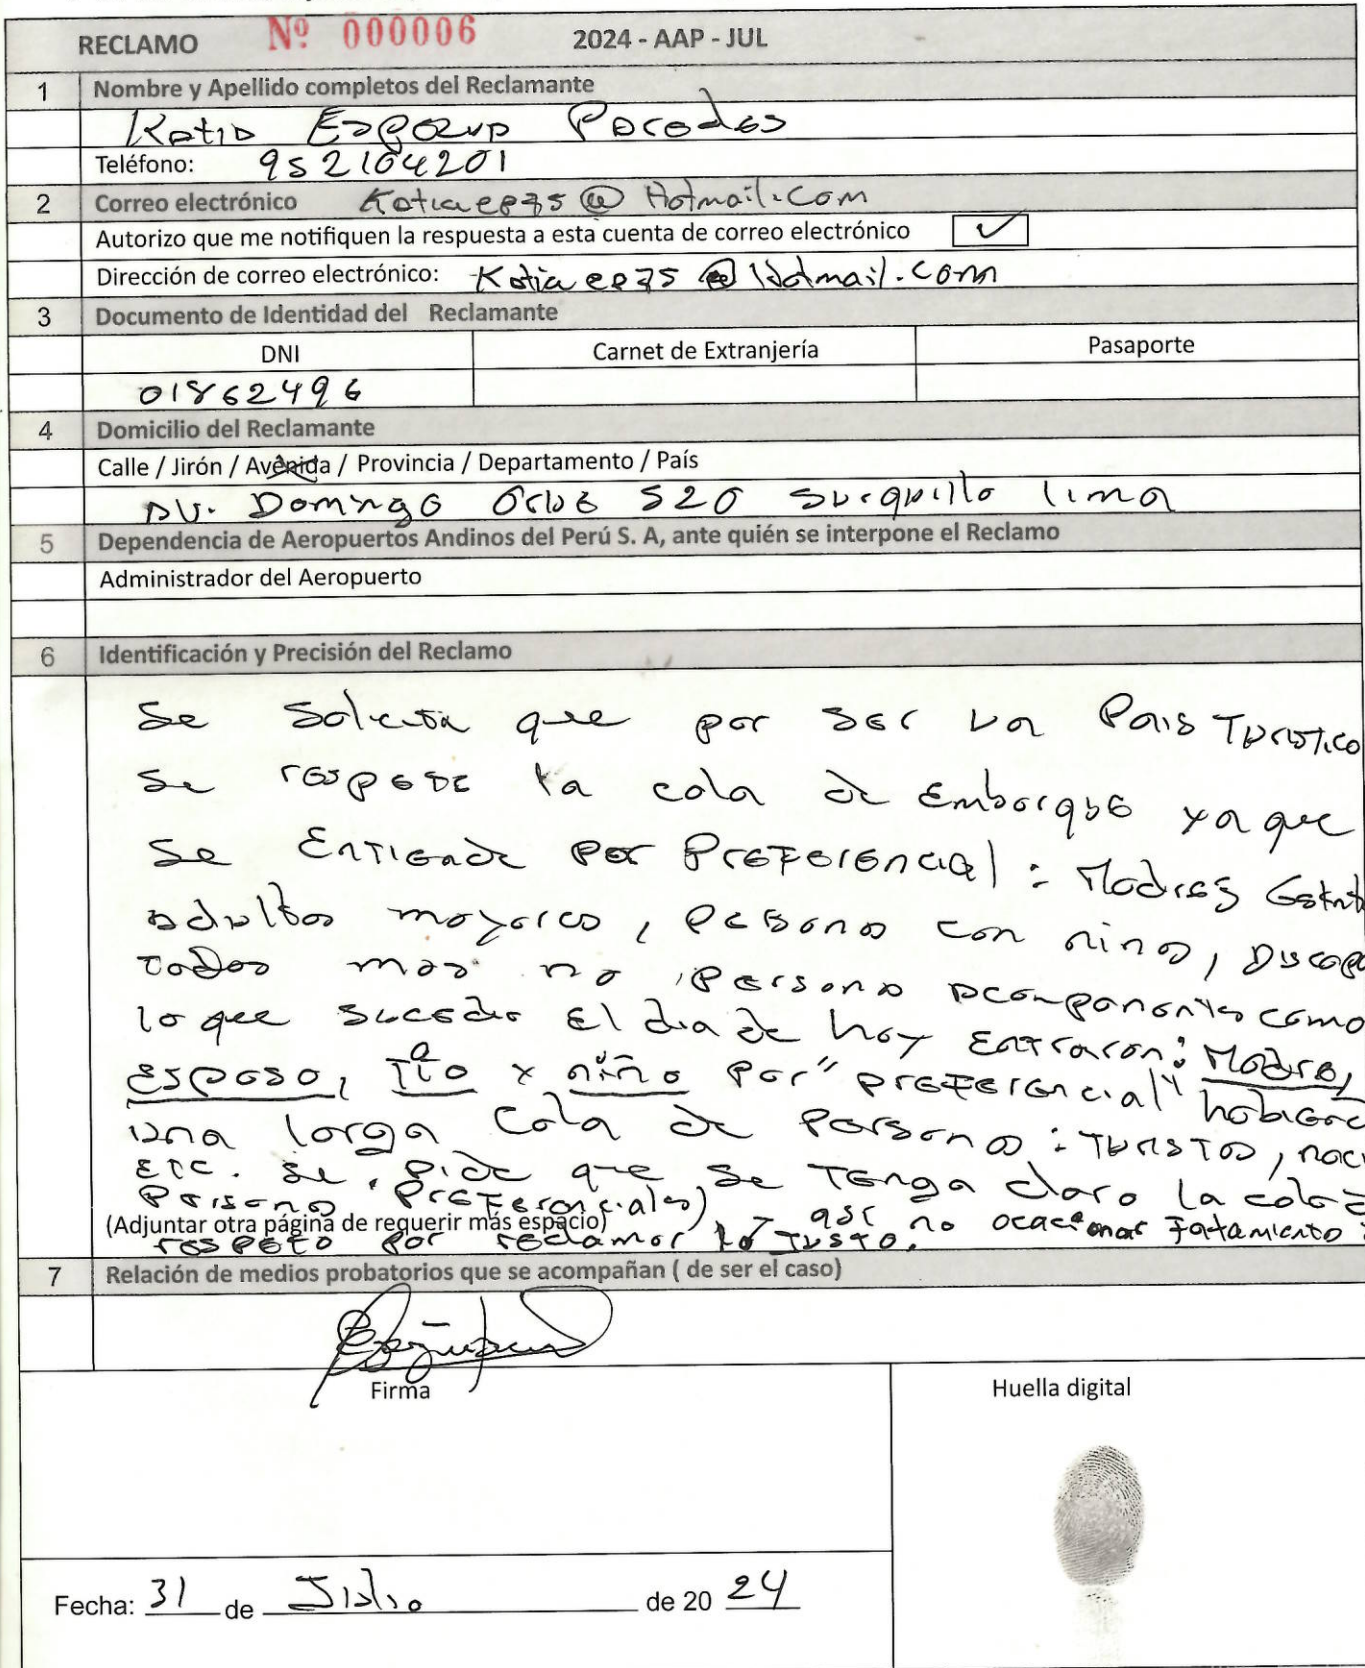 RECLAMO Nº 000006 2024 - AAP - JUL
1 Nombre y Apellido completos del Reclamante
Katia Paredes
Teléfono: 952104201
2 Correo electrónico Katiaep75@Hotmail.com
Autorizo que me notifiquen la respuesta a esta cuenta de correo electrónico ✓
Dirección de correo electrónico: Katiaep75@Hotmail.com
3 Documento de Identidad del Reclamante
DNI Carnet de Extranjería Pasaporte
01862496
4 Domicilio del Reclamante
Calle / Jirón / Avenida / Provincia / Departamento / País
AV. Domingo Orue 520 Surquillo lima
5 Dependencia de Aeropuertos Andinos del Perú S. A, ante quién se interpone el Reclamo
Administrador del Aeropuerto
6 Identificación y Precisión del Reclamo
Se Solicita que por ser un Pais Turistico
se respete la cola de Embarque ya que
se Entiende por Preferencial : Madres Gestant
adultos mayores, persona con niños, Discapa
todos mas no persona acompanantes como
lo que sucedio El dia de hoy Entraron: Madre,
esposo, Tia y niño por "preferencial" habiend
una larga Cola de personas : Turistas, naci
ETC. se pide que se Tenga claro la cola
Persona Preferenciales) y asi no ocacionar
(Adjuntar otra página de requerir más espacio)
respeto por reclamar lo Justo.
7 Relación de medios probatorios que se acompañan ( de ser el caso)
Firma Huella digital
Fecha: 31 de Julio de 20 24